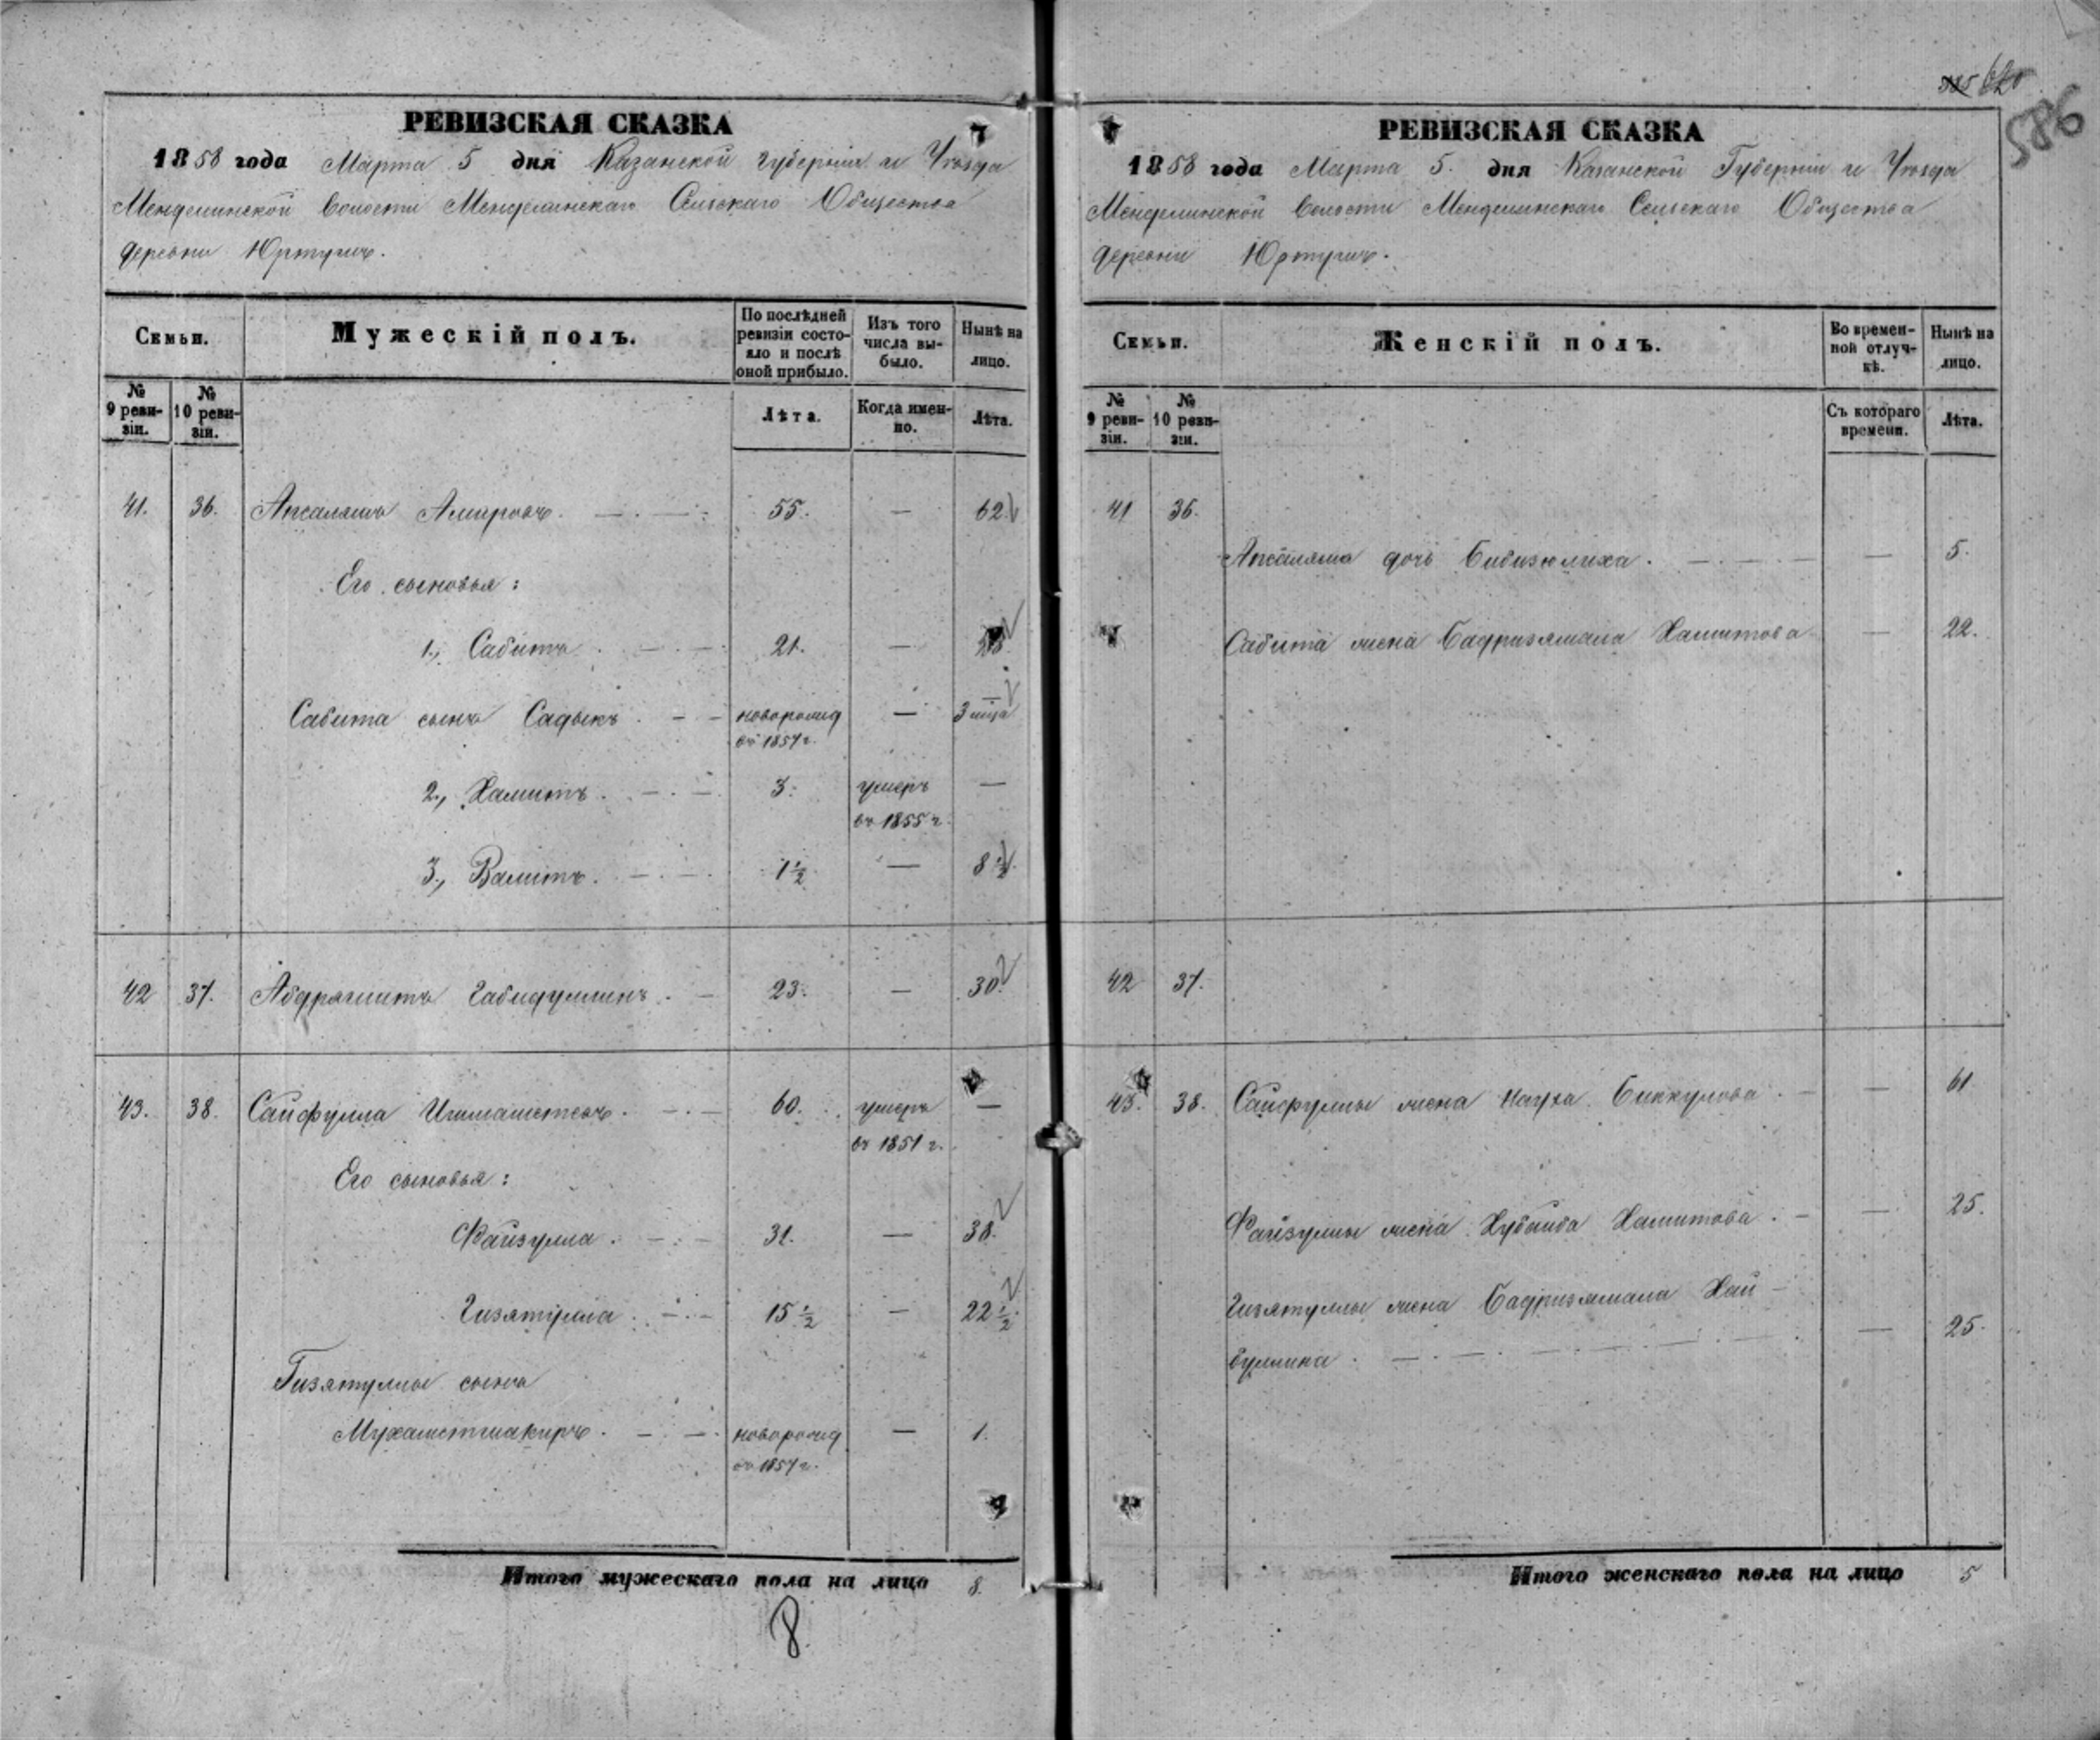 385 620
586
РЕВИЗСКАЯ СКАЗКА
1858 года Марта 5 дня Казанской Губерніи и Уѣзда
Менделинской Волости Менделинскаго Сельскаго Общества
деревни Юртушъ.
Семьи.
Мужескій полъ.
По послѣдней ревизіи состояло и послѣ оной прибыло.
Изъ того числа выбыло.
Нынѣ на лицо.
№ 9 ревизіи.
№ 10 ревизіи.
Лѣта.
Когда именно.
Лѣта.
41. 36. Апсалямъ Амировъ. 55. — 62.
Его сыновья:
1., Сабитъ. 21. — 28.
Сабита сынъ Садыкъ. новорожд — 3 мца
въ 1857 г.
2., Хамитъ. 3. умеръ —
въ 1855 г.
3., Валитъ. 1 1/2 — 8 1/2.
42 37. Абдрагшитъ Габидуллинъ. 23. — 30.
43. 38. Сайфулла Ишмаметевъ. 60. умеръ —
въ 1851 г.
Его сыновья:
Файзулла. 31. — 38.
Гизятулла. 15 1/2 — 22 1/2.
Гизятуллы сынъ
Мухаметшакиръ. новорожд — 1.
въ 1857 г.
Итого мужескаго пола на лицо 8.
8
РЕВИЗСКАЯ СКАЗКА
1858 года Марта 5. дня Казанской Губерніи и Уѣзда
Менделинской Волости Менделинскаго Сельскаго Общества
деревни Юртушъ.
Семьи.
Женскій полъ.
Во временной отлучкѣ.
Нынѣ на лицо.
№ 9 ревизіи.
№ 10 ревизіи.
Съ котораго времени.
Лѣта.
41 36.
Апсаляма дочь Бибизюлиха. — 5.
Сабита жена Бадризямала Хамитова — 22.
42 37.
43. 38. Сайфуллы жена Науха Биккулова. — 61
Файзуллы жена Хубайба Хамитова. — 25.
Гизятуллы жена Бадризямала Хай-
буллина. — 25.
Итого женскаго пола на лицо 5